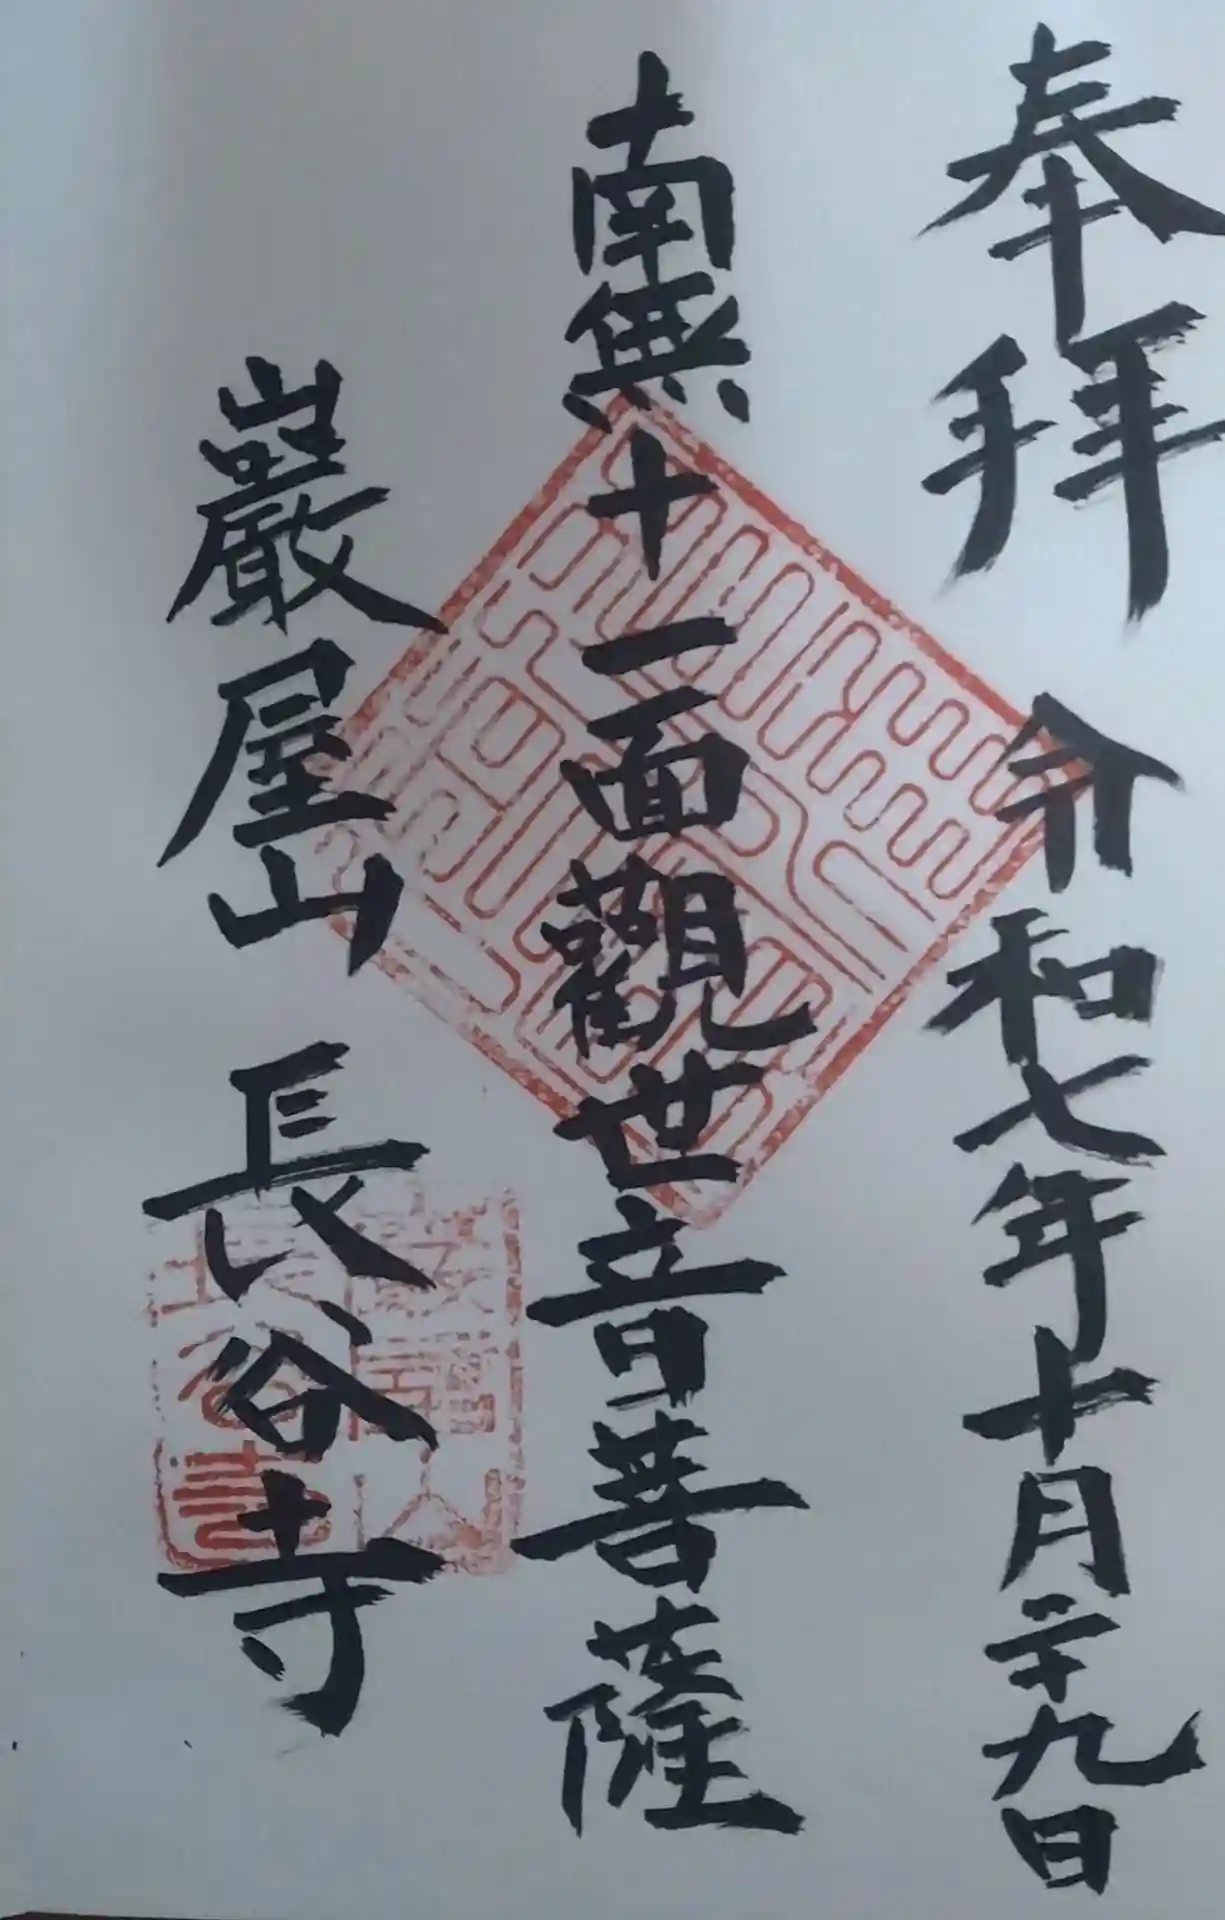 奉拝 令和七年十月二十九日
南無十一面觀世音菩薩
巖屋山 長谷寺